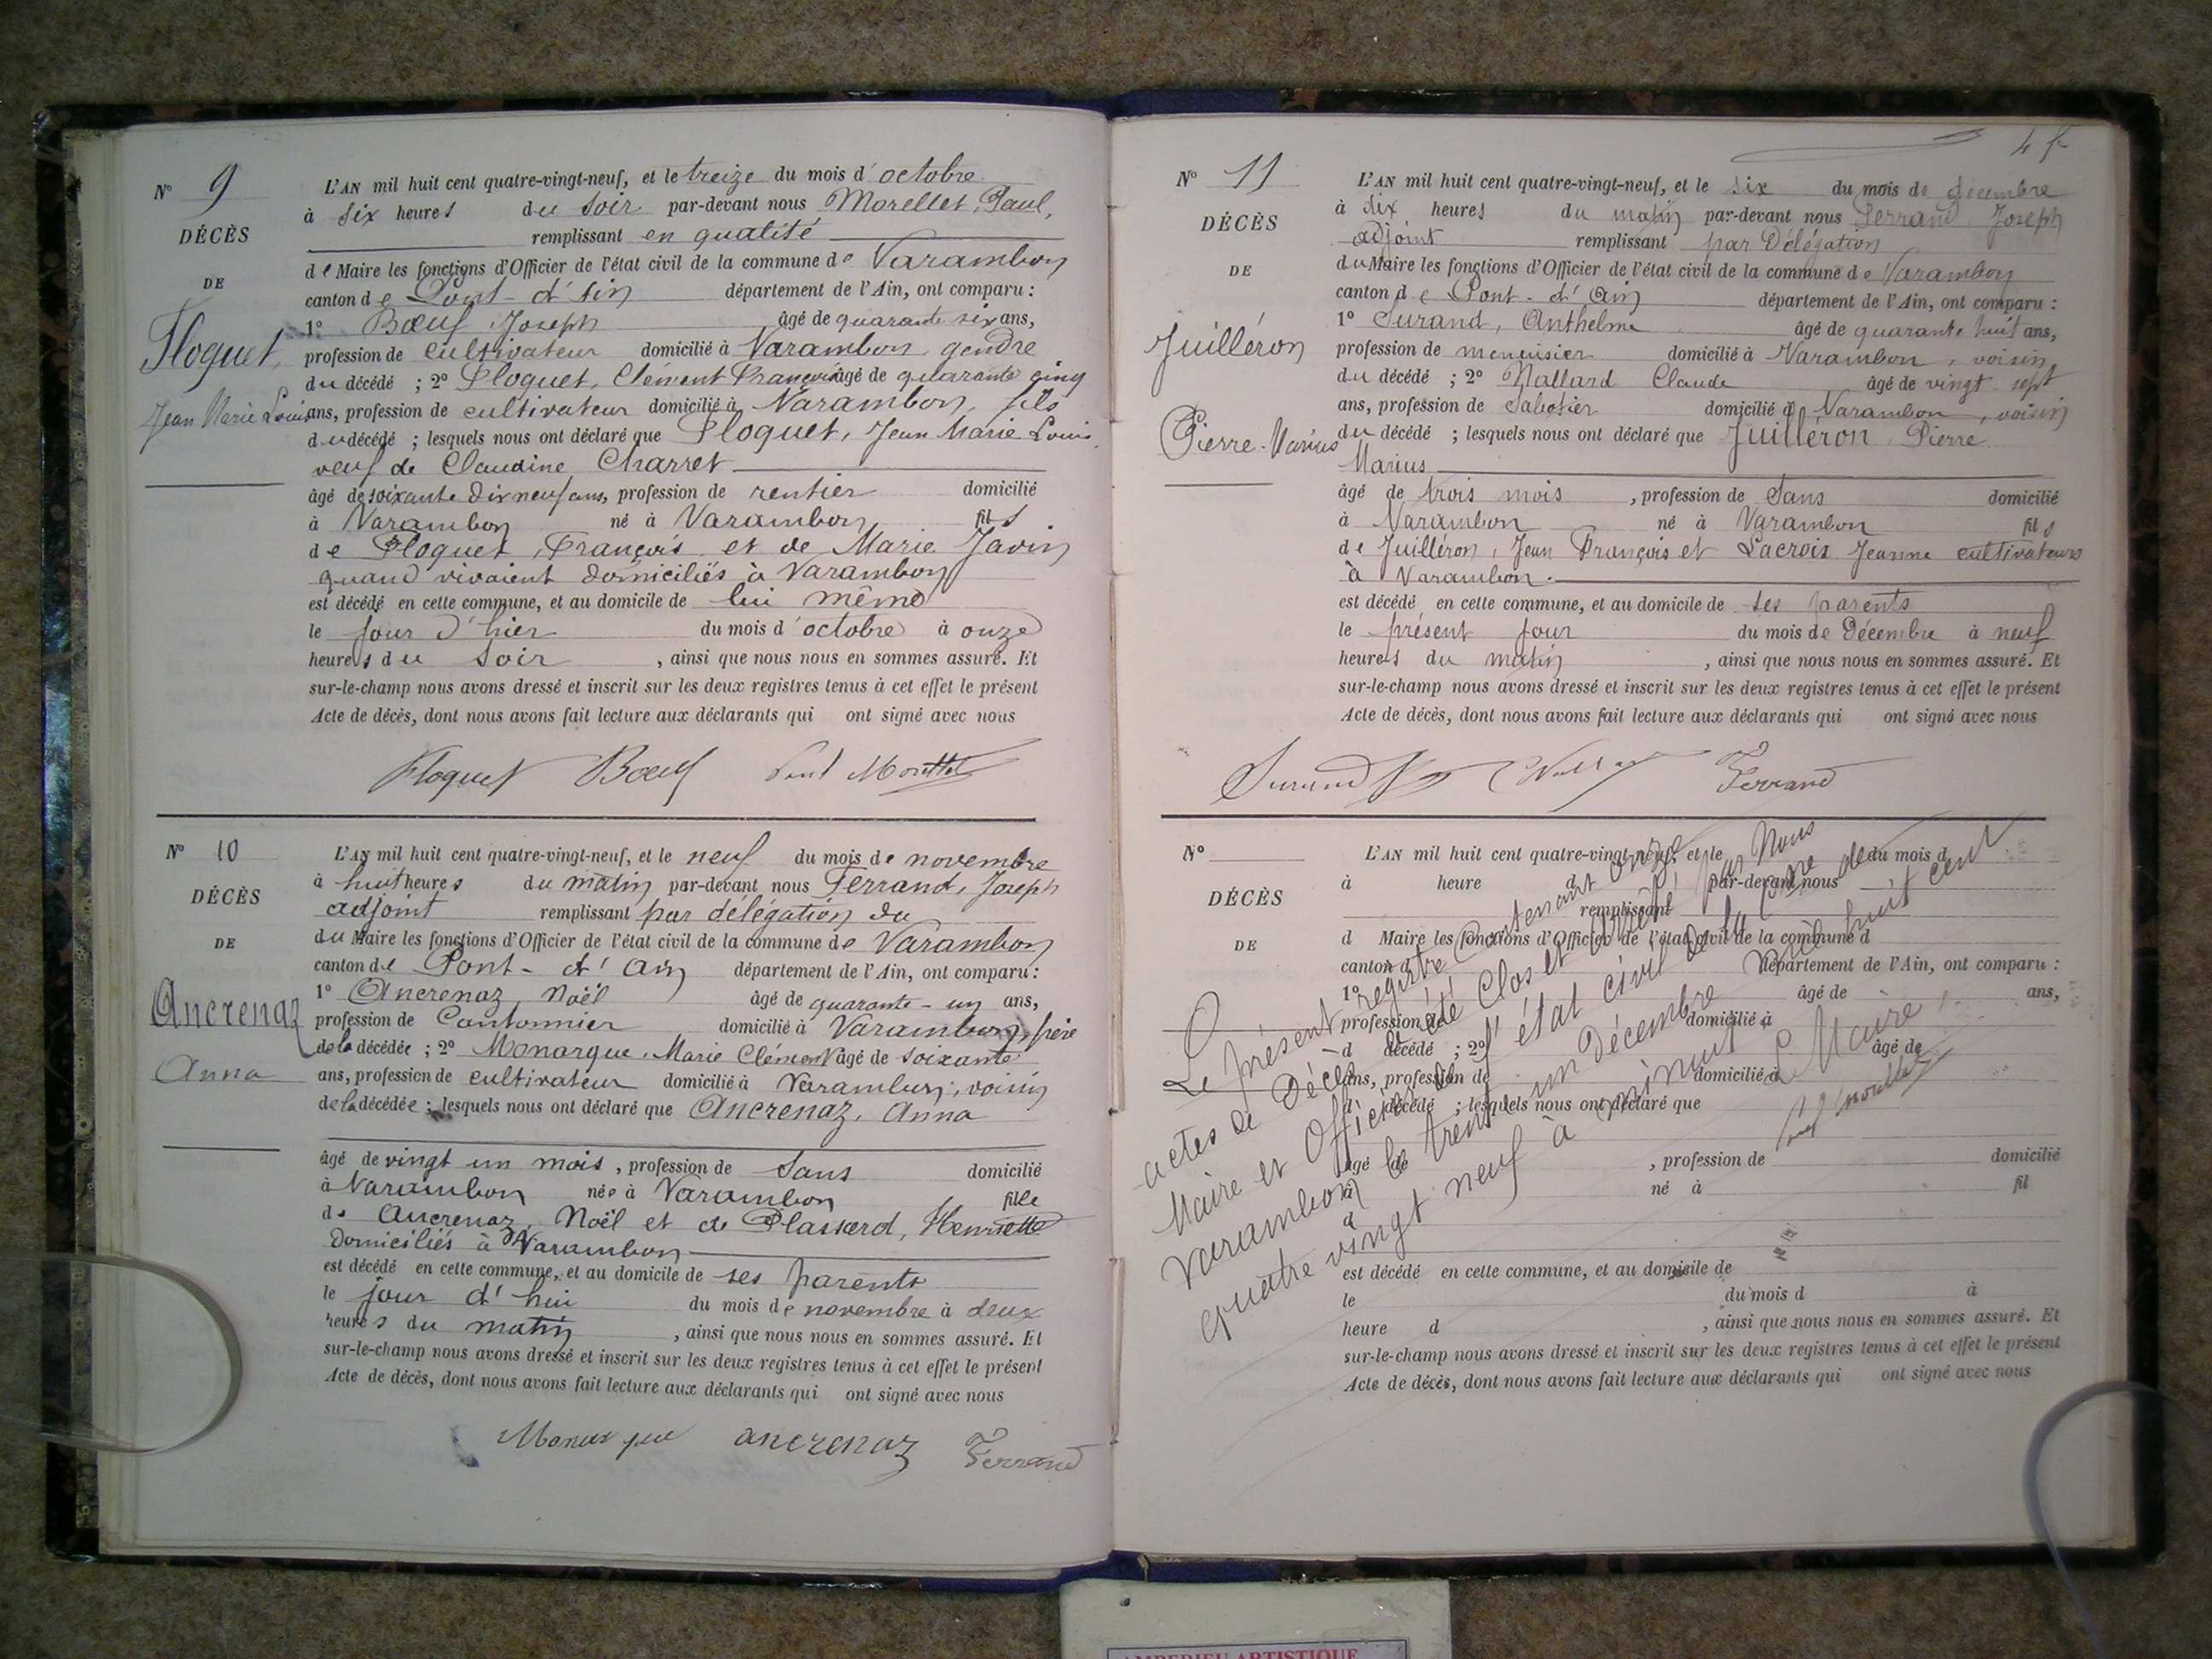 N° 9
DÉCÈS
DE
Floquet,
Jean Marie Louis
L'AN mil huit cent quatre-vingt-neuf, et le treize du mois d'octobre
à six heures du soir par-devant nous Morellet, Paul,
remplissant en qualité
de Maire les fonctions d'Officier de l'état civil de la commune de Varambon
canton de Pont-d'Ain département de l'Ain, ont comparu :
1° Bœuf Joseph âgé de quarante six ans,
profession de cultivateur domicilié à Varambon gendre
du décédé ; 2° Floquet, Clément François âgé de quarante cinq
ans, profession de cultivateur domicilié à Varambon, fils
du décédé ; lesquels nous ont déclaré que Floquet, Jean Marie Louis
veuf de Claudine Charret
âgé de soixante dix neuf ans, profession de rentier domicilié
à Varambon né à Varambon fils
de Floquet, François et de Marie Javin
quand vivaient domiciliés à Varambon
est décédé en cette commune, et au domicile de lui même
le jour d'hier du mois d'octobre à onze
heures du soir , ainsi que nous nous en sommes assuré. Et
sur-le-champ nous avons dressé et inscrit sur les deux registres tenus à cet effet le présent
Acte de décès, dont nous avons fait lecture aux déclarants qui ont signé avec nous
Floquet Bœuf Paul Morellet
N° 10
DÉCÈS
DE
Ancrenaz
Anna
L'AN mil huit cent quatre-vingt-neuf, et le neuf du mois de novembre
à huit heures du matin par-devant nous Ferrand, Joseph
adjoint remplissant par délégation du
du Maire les fonctions d'Officier de l'état civil de la commune de Varambon
canton de Pont-d'Ain département de l'Ain, ont comparu :
1° Ancrenaz, Noël âgé de quarante-un ans,
profession de Cantonnier domicilié à Varambon, père
de la décédée ; 2° Monarque, Marie Clément âgé de soixante
ans, profession de cultivateur domicilié à Varambon, voisin
de la décédée ; lesquels nous ont déclaré que Ancrenaz, Anna
âgé de vingt un mois, profession de Sans domicilié
à Varambon née à Varambon fille
de Ancrenaz, Noël et de Plassard, Henriette
domiciliés à Varambon
est décédé en cette commune, et au domicile de ses parents
le jour d'hui du mois de novembre à deux
heures du matin , ainsi que nous nous en sommes assuré. Et
sur-le-champ nous avons dressé et inscrit sur les deux registres tenus à cet effet le présent
Acte de décès, dont nous avons fait lecture aux déclarants qui ont signé avec nous
Monarque ancrenaz Ferrand
N° 11
DÉCÈS
DE
Juilléron
Pierre-Marius
L'AN mil huit cent quatre-vingt-neuf, et le six du mois de décembre
à dix heures du matin par-devant nous Ferrand Joseph
adjoint remplissant par Délégation
du Maire les fonctions d'Officier de l'état civil de la commune de Varambon
canton de Pont-d'Ain département de l'Ain, ont comparu :
1° Surand, Anthelme âgé de quarante huit ans,
profession de menuisier domicilié à Varambon, voisin
du décédé ; 2° Nallard Claude âgé de vingt sept
ans, profession de Sabotier domicilié à Varambon, voisin
du décédé ; lesquels nous ont déclaré que Juilléron, Pierre
Marius
âgé de trois mois , profession de Sans domicilié
à Varambon né à Varambon fils
de Juilléron, Jean François et Lacroix Jeanne cultivateurs
à Varambon.
est décédé en cette commune, et au domicile de ses parents
le présent jour du mois de Décembre à neuf
heures du matin , ainsi que nous nous en sommes assuré. Et
sur-le-champ nous avons dressé et inscrit sur les deux registres tenus à cet effet le présent
Acte de décès, dont nous avons fait lecture aux déclarants qui ont signé avec nous
Surand Ferrand
N°
DÉCÈS
DE
L'AN mil huit cent quatre-vingt-neuf, et le du mois d
à heure d par-devant nous
remplissant
d Maire les fonctions d'Officier de l'état civil de la commune d
canton d département de l'Ain, ont comparu :
1° âgé de ans,
profession de domicilié à
d décédé ; 2° âgé de
ans, profession de domicilié à
d décédé ; lesquels nous ont déclaré que
âgé de , profession de domicilié
à né à fil
d
est décédé en cette commune, et au domicile de
le du mois d à
heure d , ainsi que nous nous en sommes assuré. Et
sur-le-champ nous avons dressé et inscrit sur les deux registres tenus à cet effet le présent
Acte de décès, dont nous avons fait lecture aux déclarants qui ont signé avec nous
Le présent registre Contenant onze
actes de Décès a été Clos et arrêté par Nous
Maire et Officier de l'état civil de la commune de
Varambon le trente un Décembre mil huit cent
quatre vingt neuf à minuit
Le Maire,
AMBERIEU ARTISTIQUE